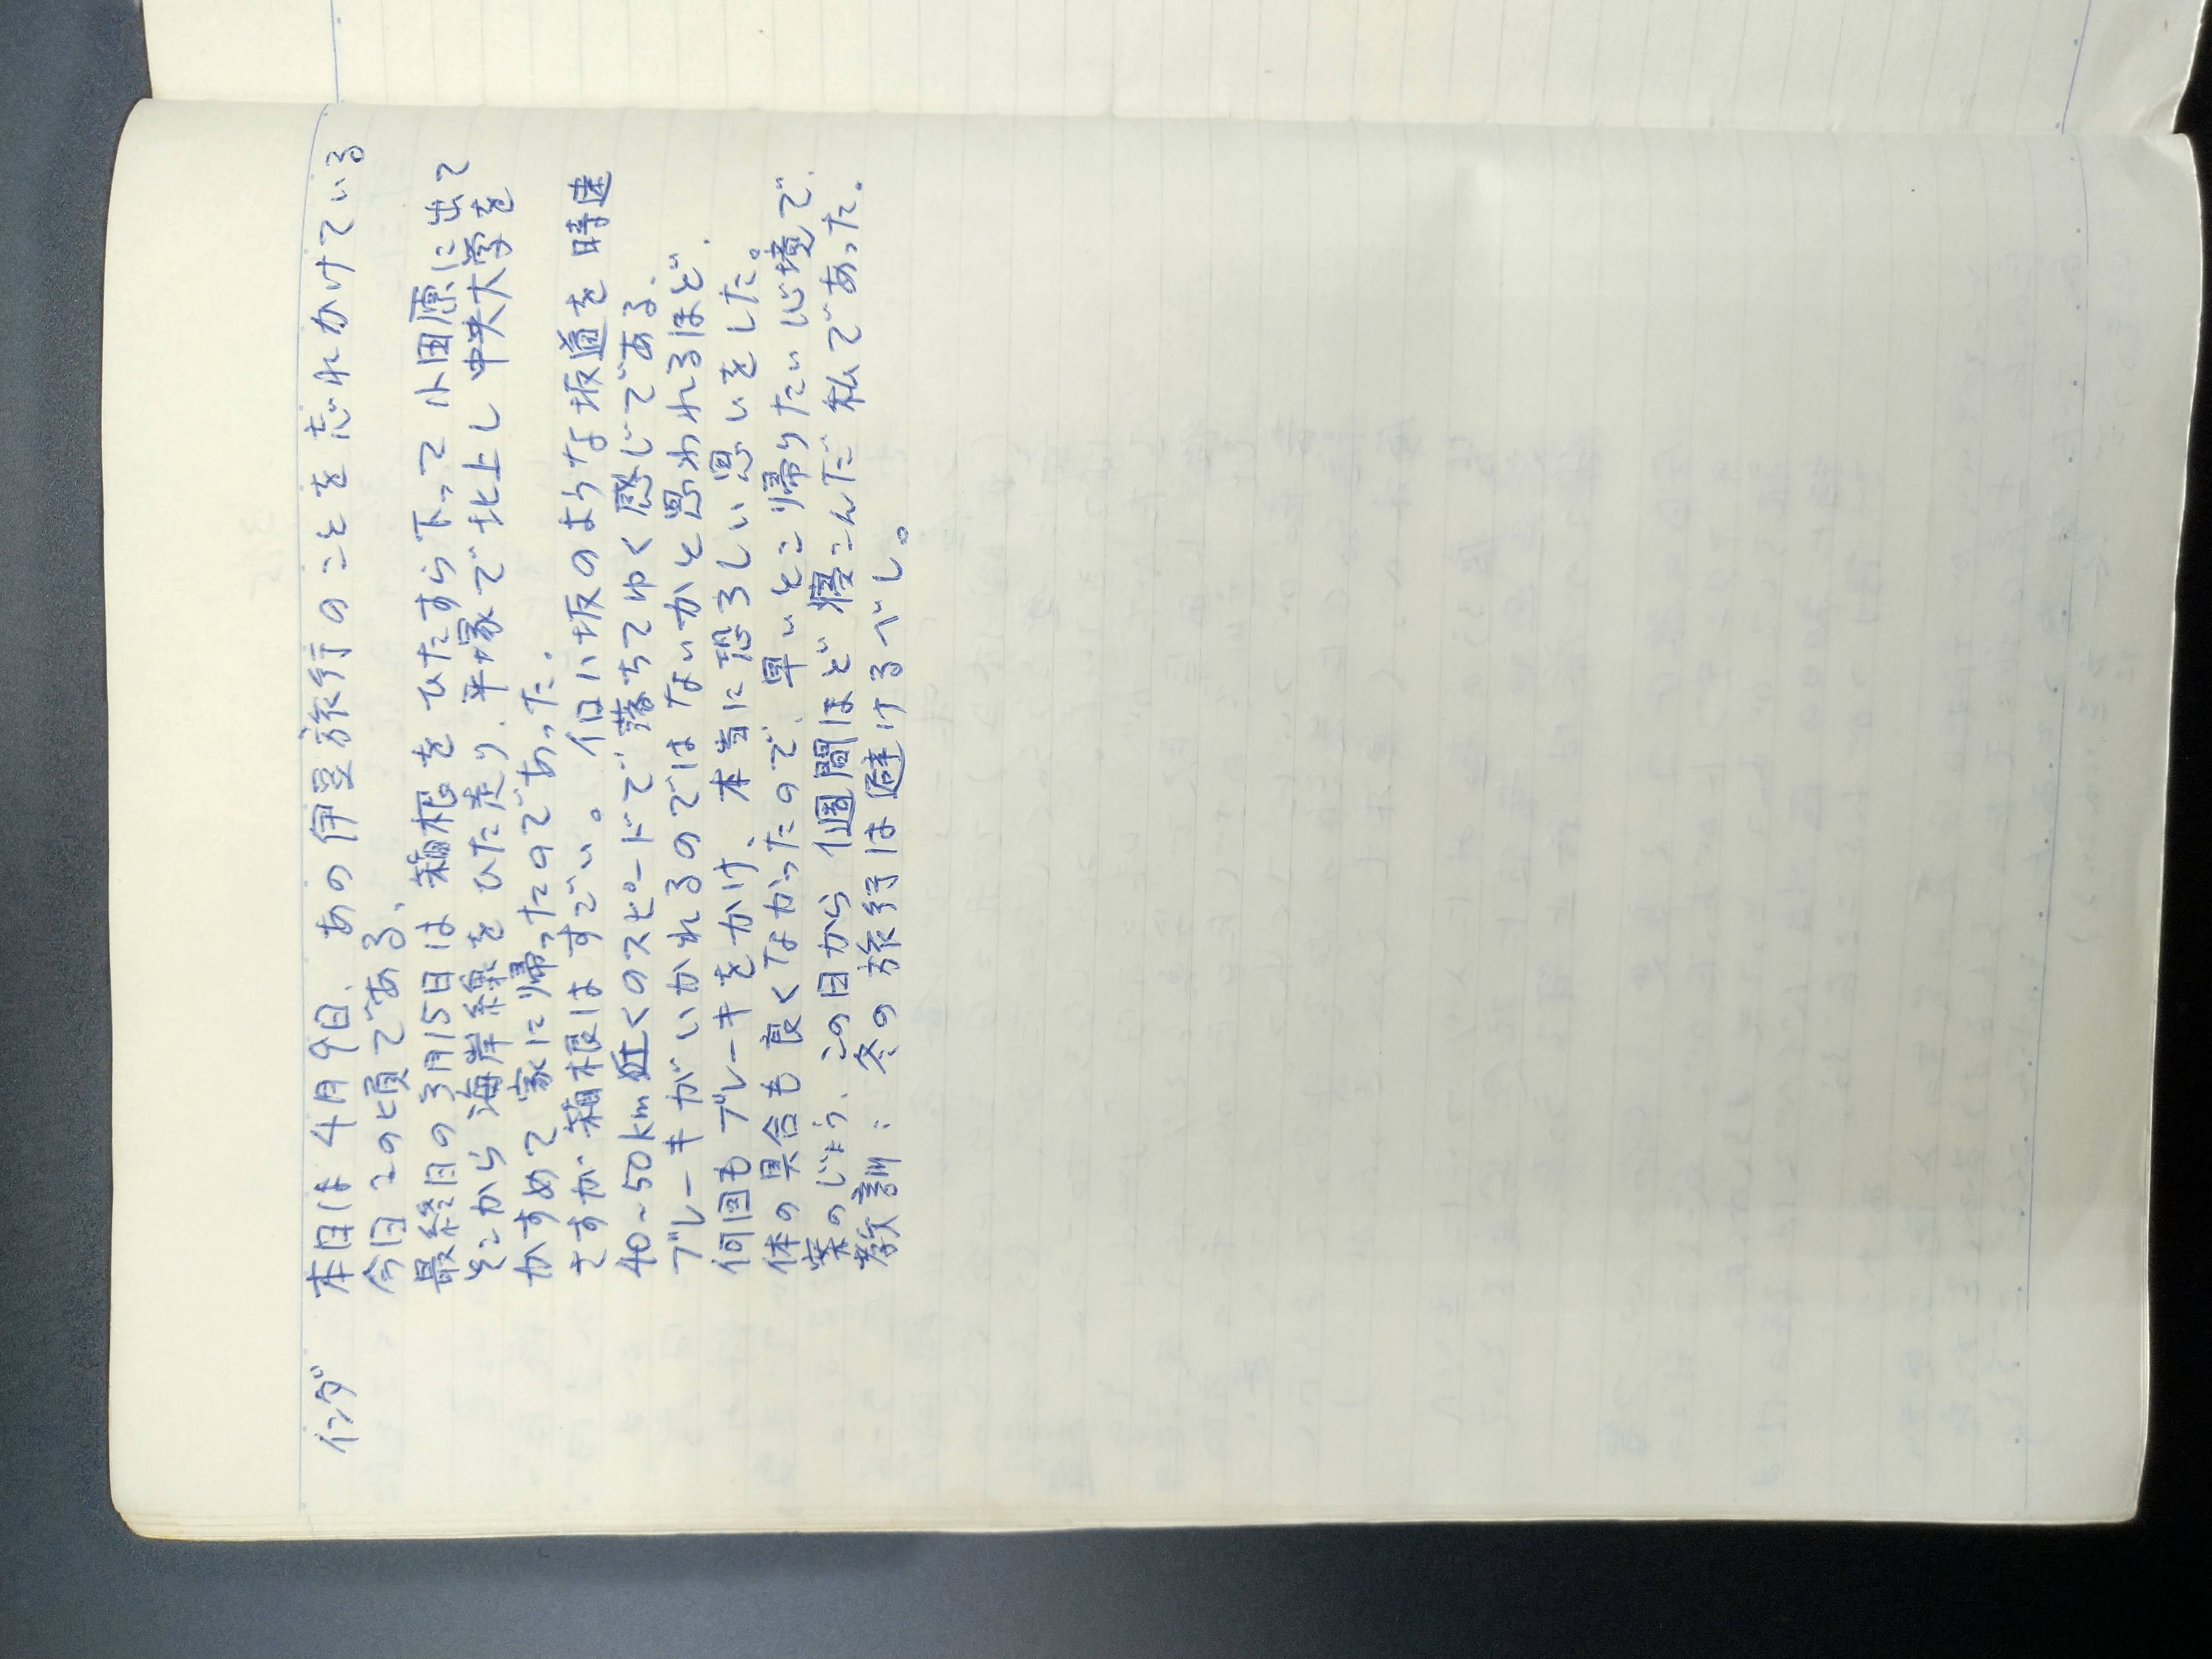 インダ 本日は4月9日、あの伊豆旅行のことを忘れかけている
今日この頃である、
最終日の3月15日は箱根をひたすら下って小田原に出て
そこから海岸線をひた走り、平塚で北上し中央大学を
かすめて家に帰ったのであった、
さすが箱根はすごい。イロハ坂のような坂道を時速
40~50km近くのスピードで落ちてゆく感じである、
ブレーキがいかれるのではないかと思われるほど、
何回もブレーキをかけ、本当に恐ろしい思いをした。
体の具合も良くなかったので、早いとこ帰りたい心境で、
案のじょう、この日から1週間ほど寝こんだ私であった。
教訓:冬の旅行は避けるべし。